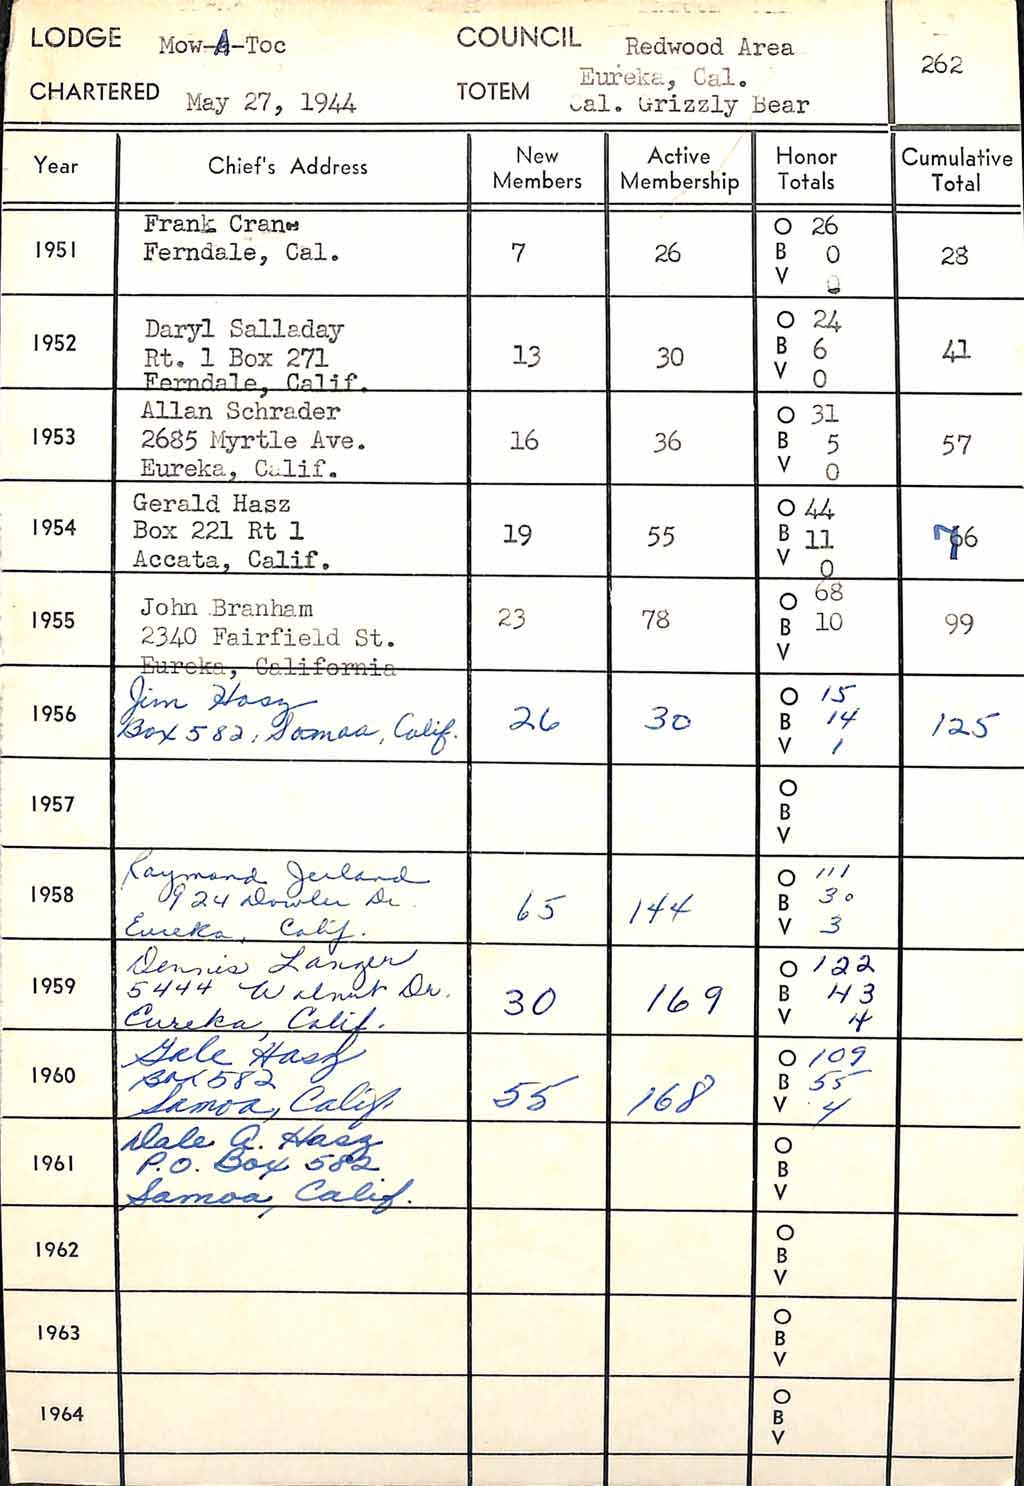 LODGE Mow-A-Toc COUNCIL Redwood Area 262
Eureka, Cal.
CHARTERED May 27, 1944 TOTEM Cal. Grizzly Bear
Year Chief's Address New Members Active Membership Honor Totals Cumulative Total
Frank Crane O 26
1951 Ferndale, Cal. 7 26 B 0 28
V 0
Daryl Salladay O 24
1952 Rt. 1 Box 271 13 30 B 6 41
Ferndale, Calif. V 0
Allan Schrader O 31
1953 2685 Myrtle Ave. 16 36 B 5 57
Eureka, Calif. V 0
Gerald Hasz O 44
1954 Box 221 Rt 1 19 55 B 11 76
Accata, Calif. V 0
John Branham O 68
1955 2340 Fairfield St. 23 78 B 10 99
Eureka, California V
Jim Hasz O 15
1956 Box 582, Samoa, Calif. 26 30 B 14 125
V 1
O
1957 B
V
Raymond O 111
1958 924 Dowler Dr. 65 144 B 30
Eureka, Calif. V 3
Dennis Langer O 122
1959 5444 Walnut Dr. 30 169 B 43
Eureka, Calif. V 4
Gale Hasz O 109
1960 Box 582 55 168 B 55
Samoa, Calif. V 4
Dale A. Hasz O
1961 P.O. Box 582 B
Samoa, Calif. V
O
1962 B
V
O
1963 B
V
O
1964 B
V